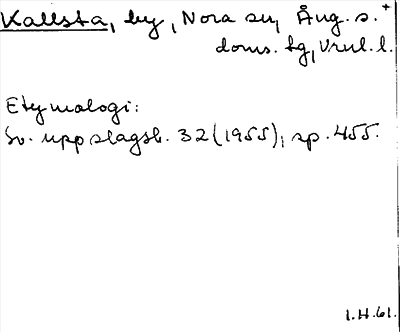 Kallsta, by, Nora sn, Ång. s.+
doms. tg, Vnl. l.
Etymologi:
Sv. uppslagsb. 32 (1955), sp. 455.
1.H.61.